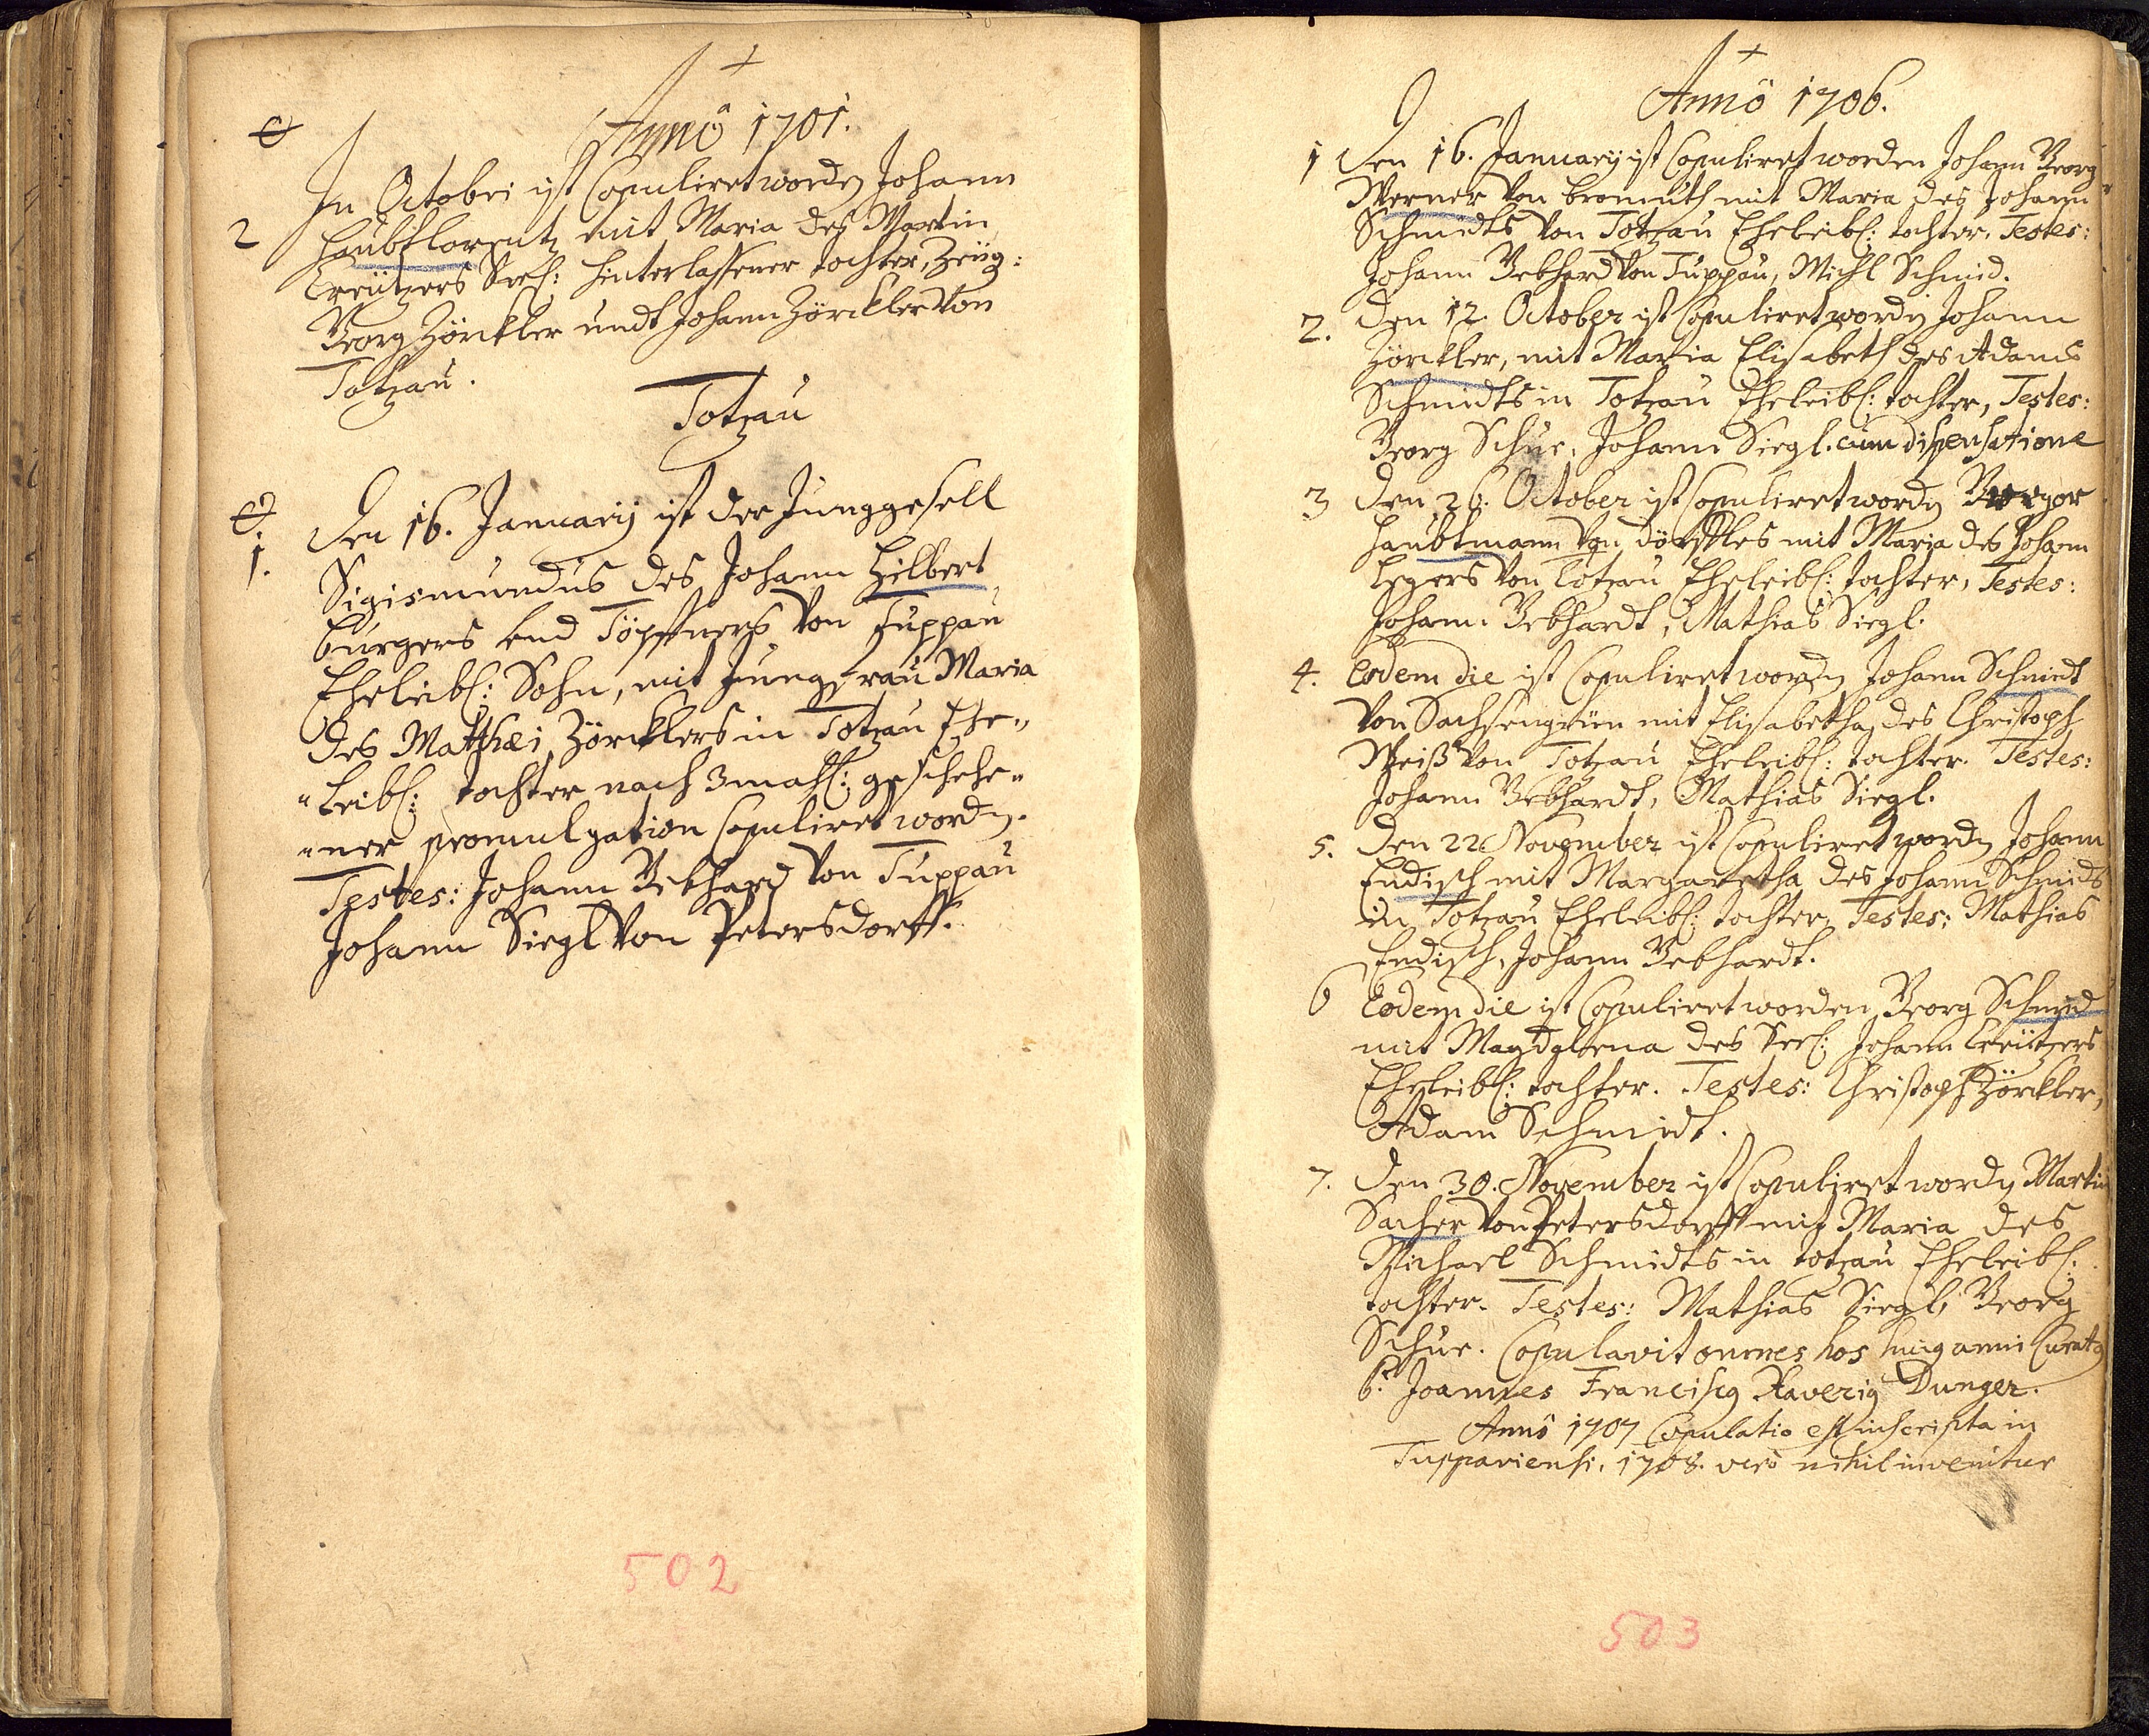 Anno 1701.
In Octobri ist Copuliret wordn Johann
2 Haubtlorentz mit Maria des Martin
Creützers Seel: hinterlassener tochter, Zeüg:
Georg Zörckler undt Johann Zörckler von
Totzau.
Totzau
1. Den 16. Januarij ist der Junggesell
Sigismundus des Johann Hilbert
burgers und Töpffners von Tuppau
Eheleibl: Sohn, mit Jungfrau Maria
des Matthæi Zörcklers in Totzau Ehe„
„leibl: tochter nach 3mahl: geschehe„
„ner promulgation Copuliret wordn.
Testes: Johann Gebhard von Tuppau
Johann Siegl von Petersdorff.
502
Anno 1706.
1 Den 16. Januarij ist Copuliret worden Johann Georg
Werner von bromuth mit Maria des Johann
Schmidts von Totzau Eheleibl: tochter. Testes:
Johann Gebhard von Tuppau, Michl Schmid.
2. Den 12. October ist Copuliret wordn Johann
Zörckler, mit Maria Elisabeth des Adams
Schmidts in Totzau Eheleibl: tochter, Testes:
Georg Schur, Johann Siegl. cum dispensatione
3 Den 26. October ist Copuliret wordn Gregor
Haubtmann von dörffles mit Maria des Johann
Legers von totzau Eheleibl: tochter, Testes:
Johann Gebhardt, Mathias Siegl.
4. Eodem die ist Copuliret wordn Johann Schmidt
von Sachsengrün mit Elisabetha des Christoph
Weiß von Totzau Eheleibl: tochter. Testes:
Johann Gebhardt, Mathias Siegl.
5. Den 22 November ist Copuliret wordn Johann
Endisch mit Margaretha des Johann Schmids
in Totzau Eheleibl: tochter, Testes: Mathias
Endisch, Johann Gebhardt.
6 Eodem die ist Copuliret worden Georg Schmid
mit Magdalena des Seel: Johann Creützers
Eheleibl: tochter. Testes: Christoph Zörckler,
Adam Schmidt.
7. Den 30. November ist Copuliret wordn Martin
Sacher von Petersdorff mit Maria des
Michael Schmidts in totzau Eheleibl:
tochter. Testes: Mathias Siegl, Georg
Schur. Copulavit omnes hos huig anni Curatg
Joannes Franciscg Xaverig Dunger.
Anno 1707 Copulatio est inscripta in
Tuppaviensi, 1708. vero nihil invenitur
503